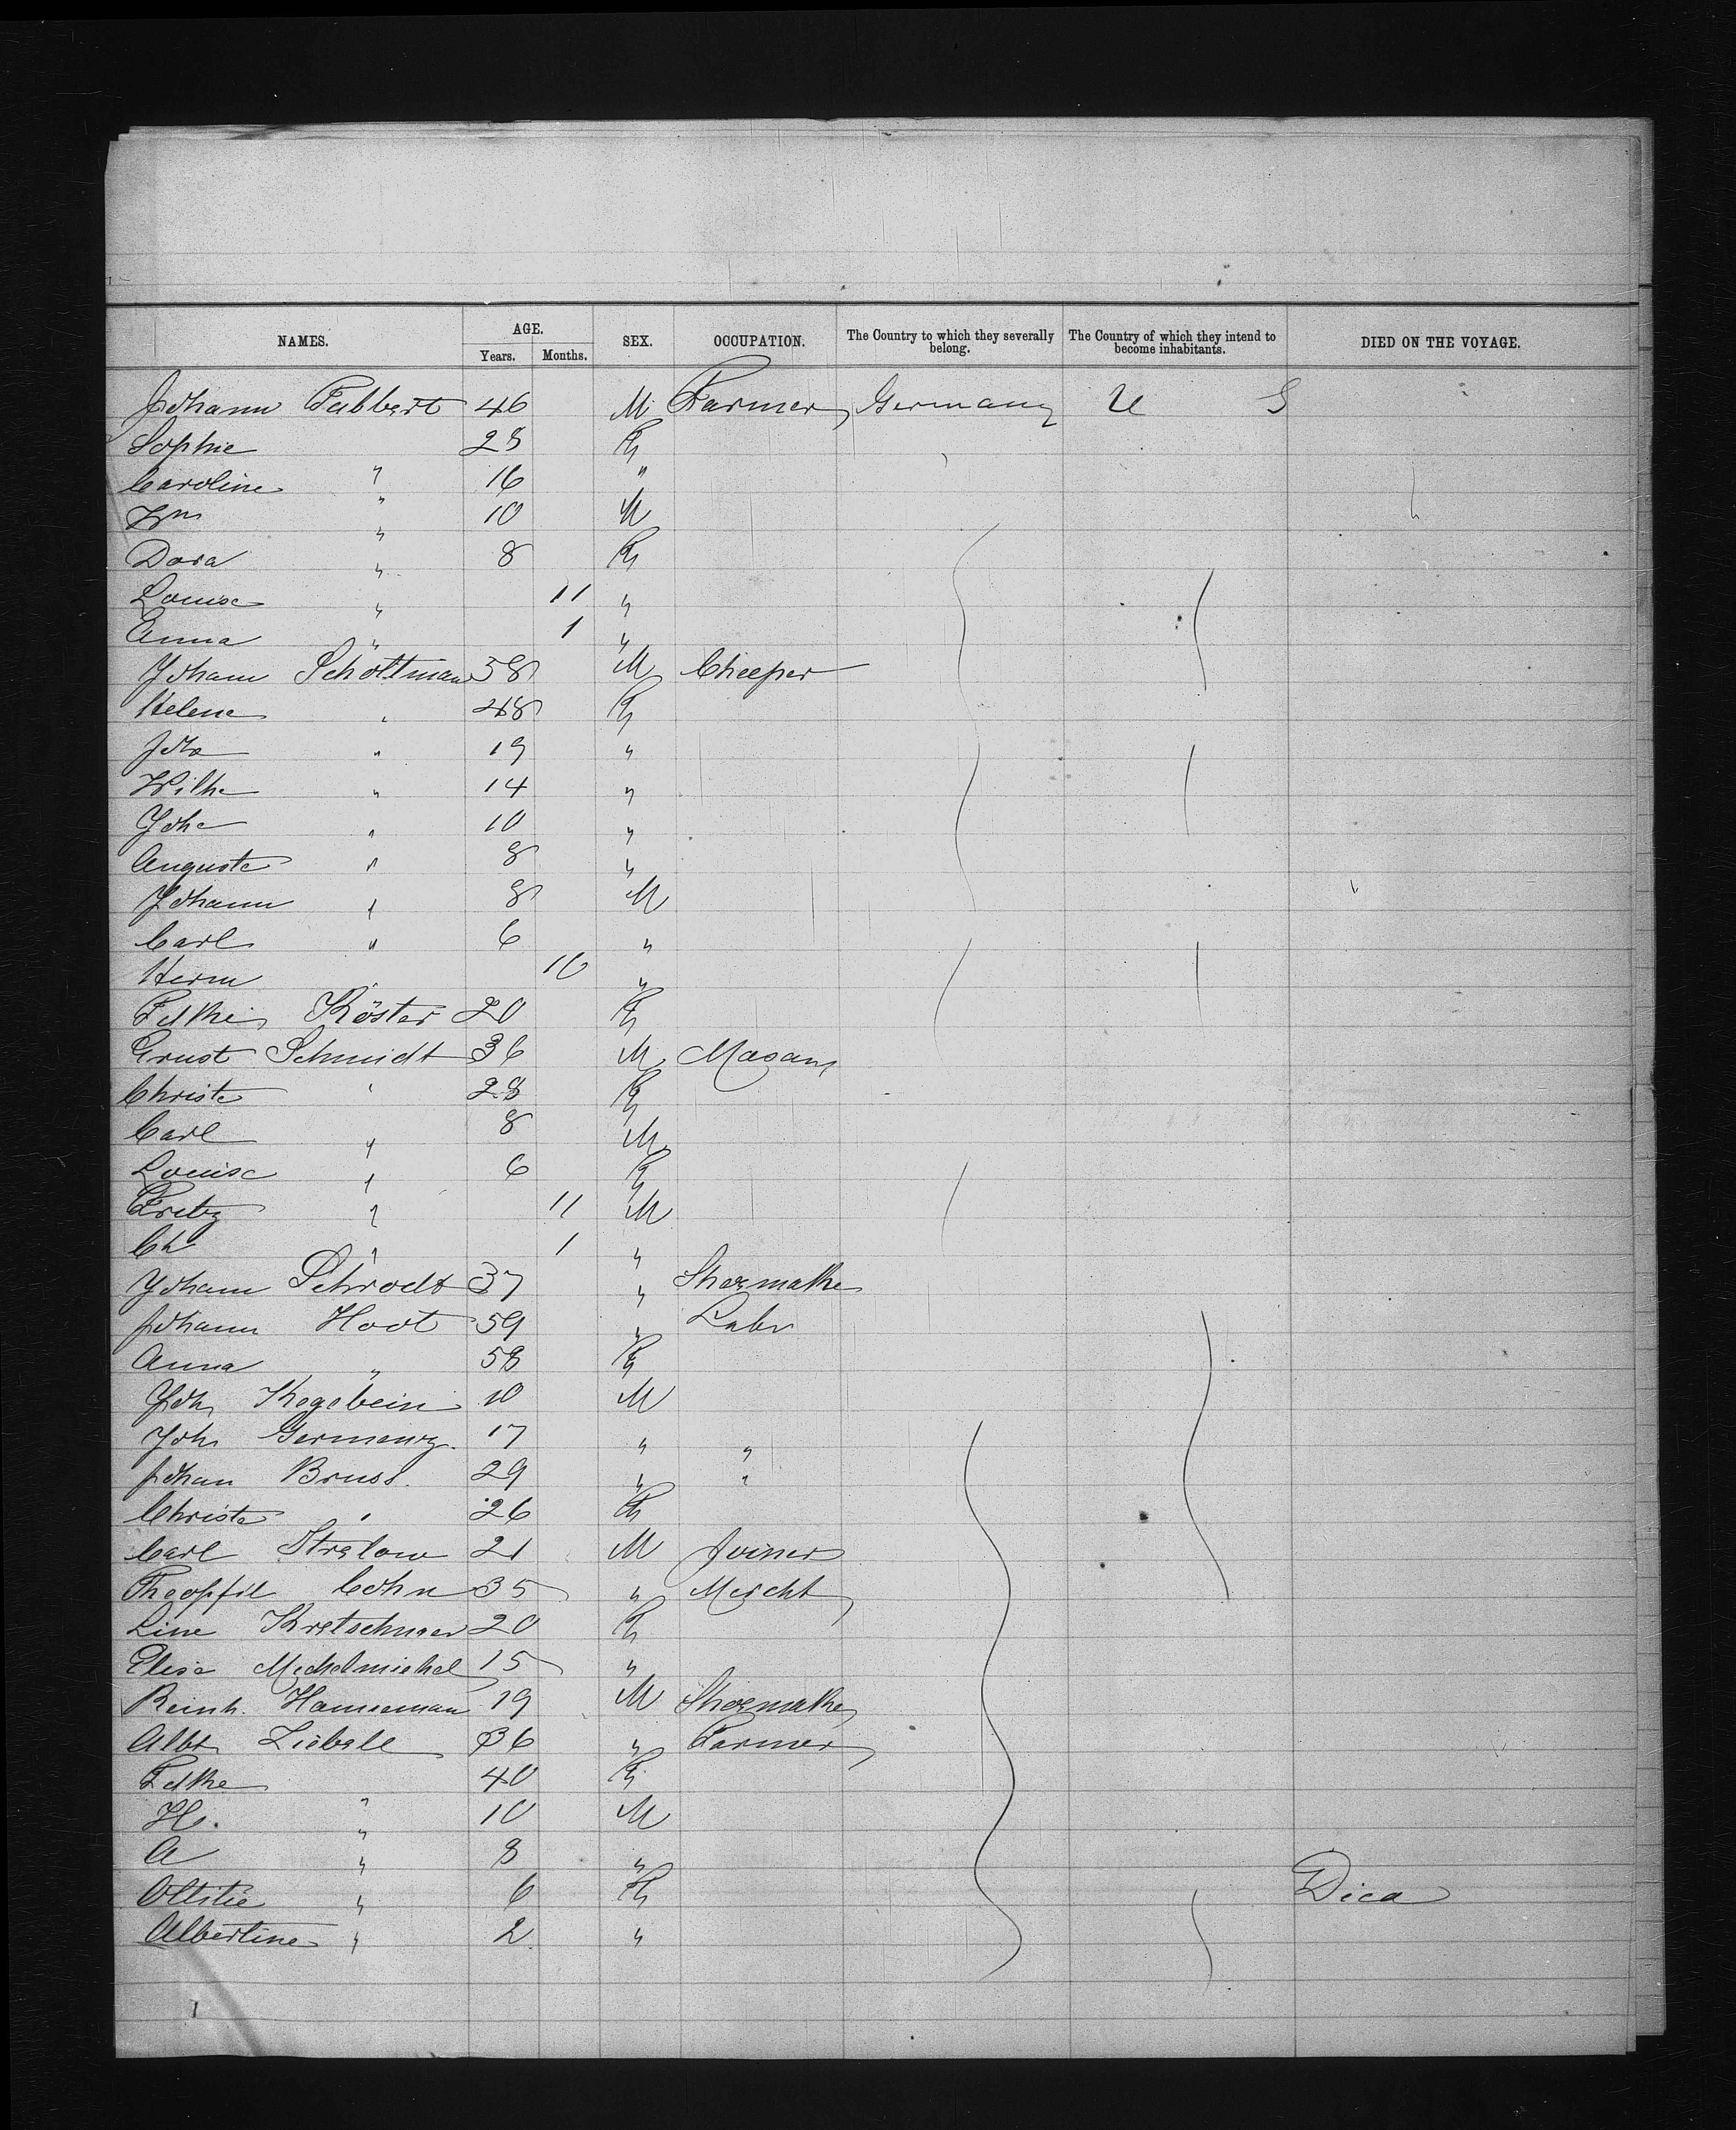 NAMES. AGE. SEX. OCCUPATION. The Country to which they severally belong. The Country of which they intend to become inhabitants. DIED ON THE VOYAGE.
Years. Months.
Johann Fabbert 46 M Farmer Germany U S
Sophie 28 F
Caroline " 16 "
Wm " 10 M
Dora " 8 F
Louise " 11 "
Anna " 1 "
Joham Scholtman 58 M
Helene " 48 F
" 19 "
Wilhe " 14 "
Johe " 10 "
Auguste " 8 "
Johann " 8 M
Carl " 6 "
Herm " 10 "
Köster 20 F
Ernst Schmidt 36 M Masan
Christe " 28 F
Carl " 8 M
Louise " 6 F
Fritz " 11 M
Ch " 1 "
Joham Schrodt 37 " Shoemake
Johann Hoot 59 " Labr
Anna " 58 F
Joh Kogebein 10 M
Joh Germany 17 " "
Johan Bruss. 29 " "
Christe " 26 F
Carl Stralow 21 M Joiner
Theopfil Cohn 35 " Mercht
Line Kretschmer 20 F
Elise Mechelmichel 15 "
Reinh. Hanneman 19 M Shoemake
Albt Ziebell 36 " Farmer
40 F
H. " 10 M
A " 8 "
Ottilie " 6 F Died
Albertine " 2 "